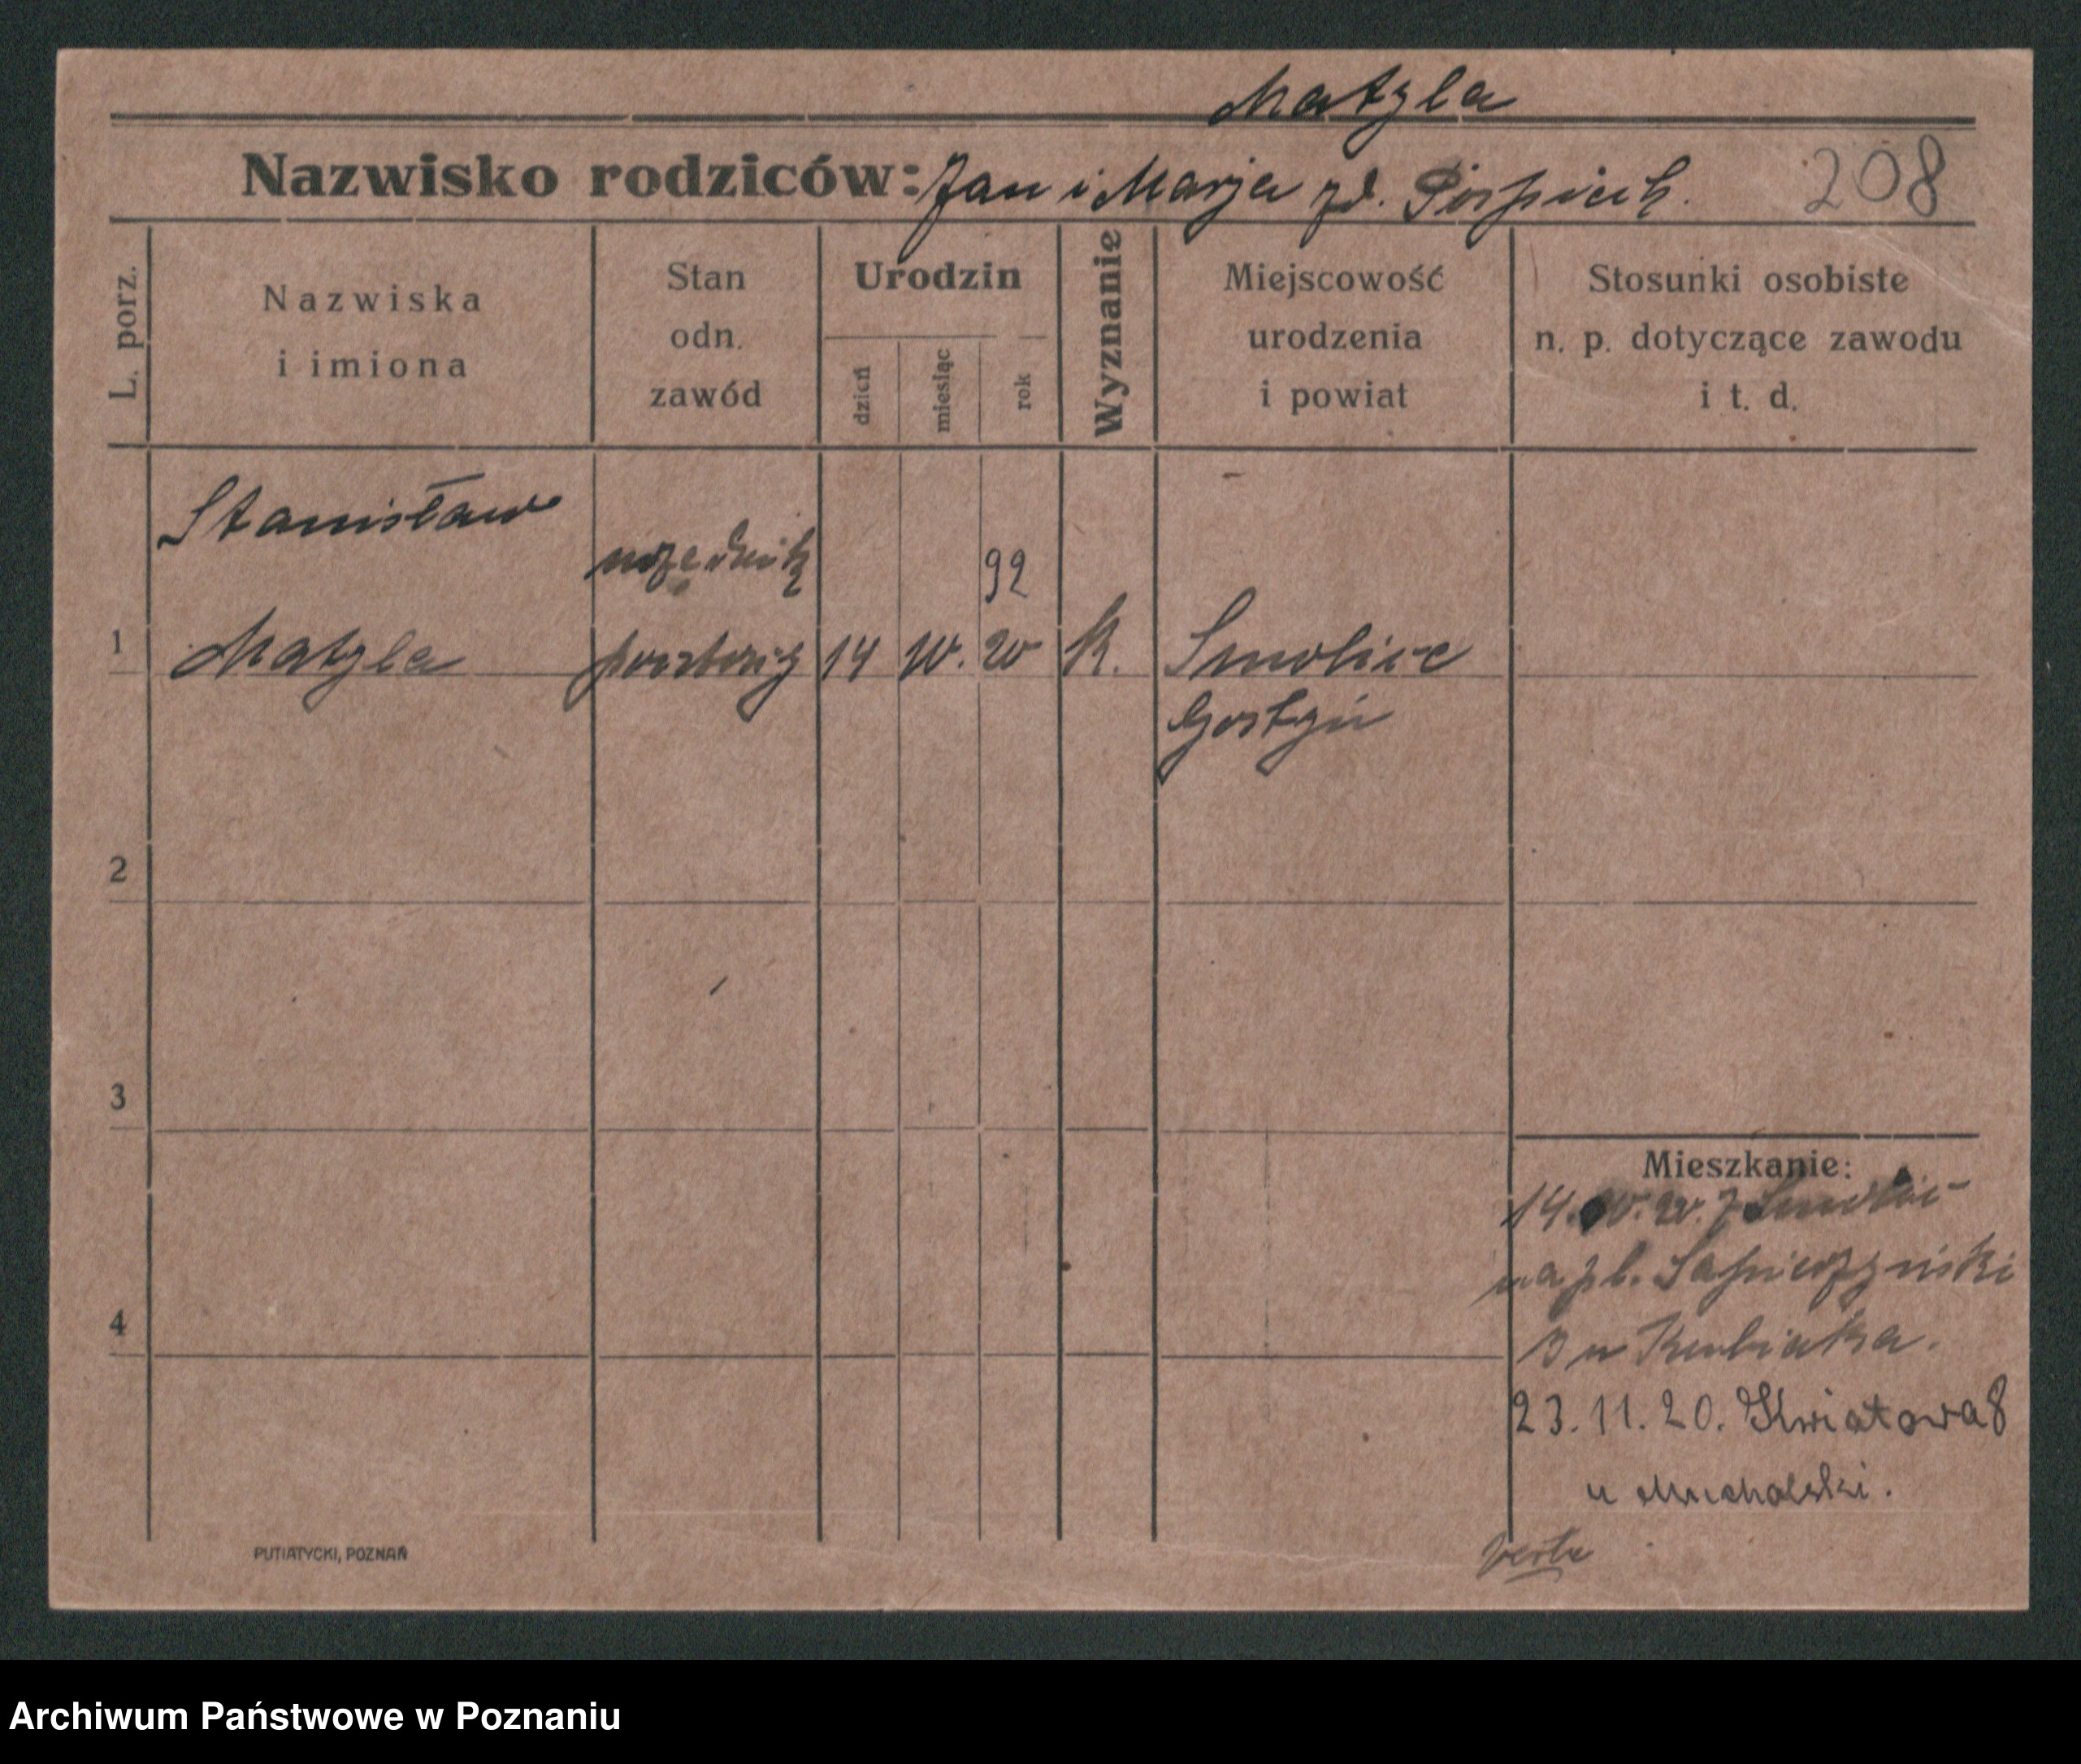 Matyla
Nazwisko rodziców: Jan i Marja zd. Pospiech.
208
L. porz.
Nazwiska
i imiona
Stan
odn.
zawód
Urodzin
dzień
miesiąc
rok
Wyznanie
Miejscowość
urodzenia
i powiat
Stosunki osobiste
n. p. dotyczące zawodu
i t. d.
Stanisław
urzędnik
92
1 Matyla 14 20 K. Smolice
Gostyń
2
3
4
Mieszkanie:
14. 20. z Smolic
na pl. Sapieżyński
3 u Kubiaka.
23.11.20. Kwiatowa 8
u Michalski.
verte
PUTIATYCKI, POZNAŃ
Archiwum Państwowe w Poznaniu